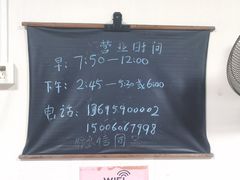 营业时间
早：7:50—12:00
下午：2:45—5:30或6:00
电话：13695900002
15006067998
微信同
WIFI